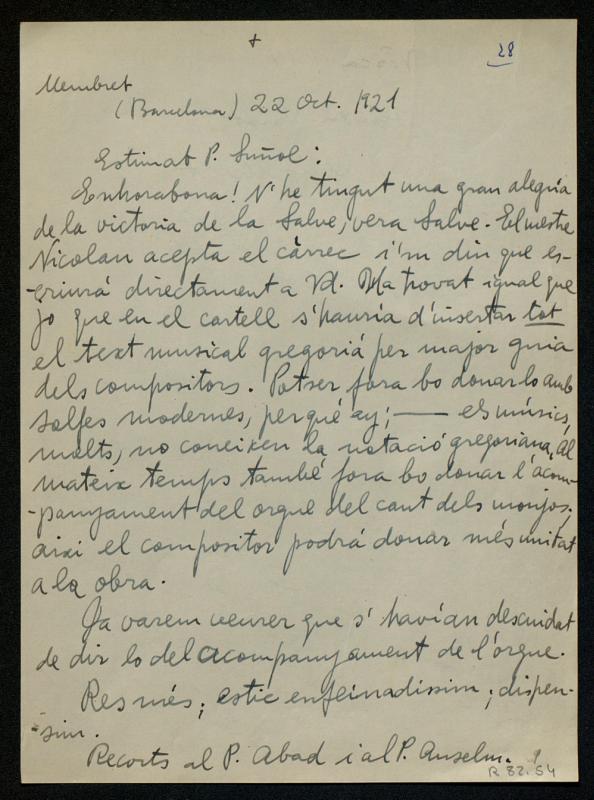 +
28
Membret
(Barcelona) 22 Oct. 1921
Estimat P. Suñol:
Enhorabona! N'he tingut una gran alegria
de la victoria de la Salve, vera Salve. El mestre
Nicolau acepta el càrrec i'm diu que es-
-criurá directament a Vd. Ha trovat igual que
jo que en el cartell s'hauría d'insertar tot
el text musical gregoriá per major guia
dels compositors. Potser fora bo donarlo amb
solfes modernes, perqué ay; — els músics,
molts, no coneixen la notació gregoriana. Al
mateix temps també fora bo donar l'acom-
-panyament del orgue del cant dels monjos;
aixi el compositor podrá donar més unitat
a la obra.
Ja varem veurer que s'havían descuidat
de dir lo del acompanyament de l'orgue.
Res més; estic enfeinadissim; dispen-
-sim.
Recorts al P. Abad i al P. Anselm.
R 82.54